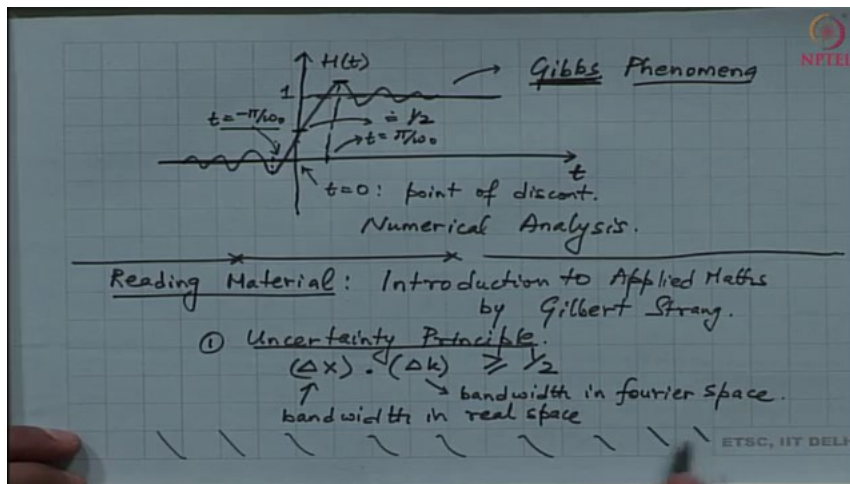 H(t)
Gibbs Phenomena
NPTEL
1
t = -π/ω₀
= 1/2
t = π/ω₀
t
t=0: point of discont.
Numerical Analysis.
Reading Material: Introduction to Applied Maths
by Gilbert Strang.
① Uncertainty Principle.
(Δx) . (Δk) ≥ 1/2
bandwidth in fourier space.
bandwidth in real space
ETSC, IIT DELH